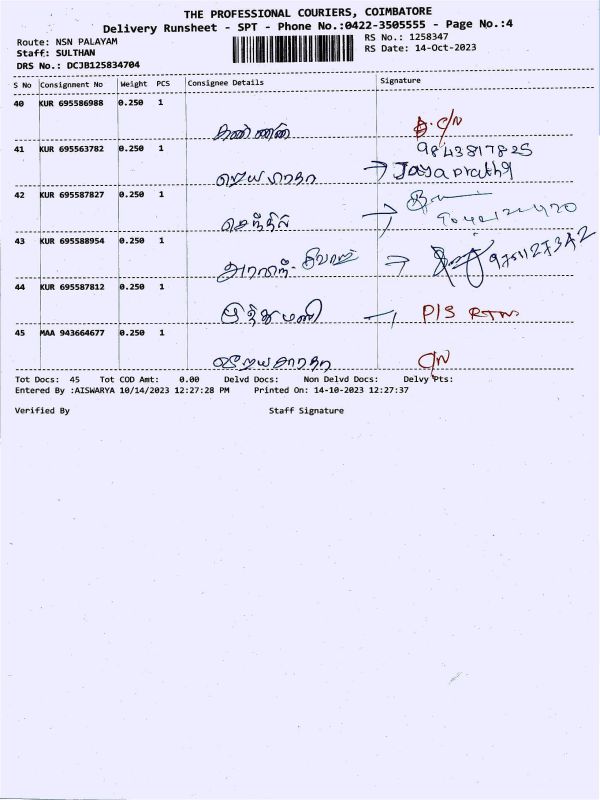 THE PROFESSIONAL COURIERS, COIMBATORE
Delivery Runsheet - SPT - Phone No.:0422-3505555 - Page No.:4
Route: NSN PALAYAM RS No.: 1258347
Staff: SULTHAN RS Date: 14-Oct-2023
DRS No.: DCJB125834704
S No Consignment No Weight PCS Consignee Details Signature
40 KUR 695586988 0.250 1
கண்ணன் C/N
41 KUR 695563782 0.250 1 9843817825
ஜெயபாரதா → Jayaprathq
42 KUR 695587827 0.250 1
செந்தில் →
43 KUR 695588954 0.250 1
→
44 KUR 695587812 0.250 1
முத்துமணி P/S RTN
45 MAA 943664677 0.250 1
C/N
Tot Docs: 45 Tot COD Amt: 0.00 Delvd Docs: Non Delvd Docs: Delvy Pts:
Entered By :AISWARYA 10/14/2023 12:27:28 PM Printed On: 14-10-2023 12:27:37
Verified By Staff Signature